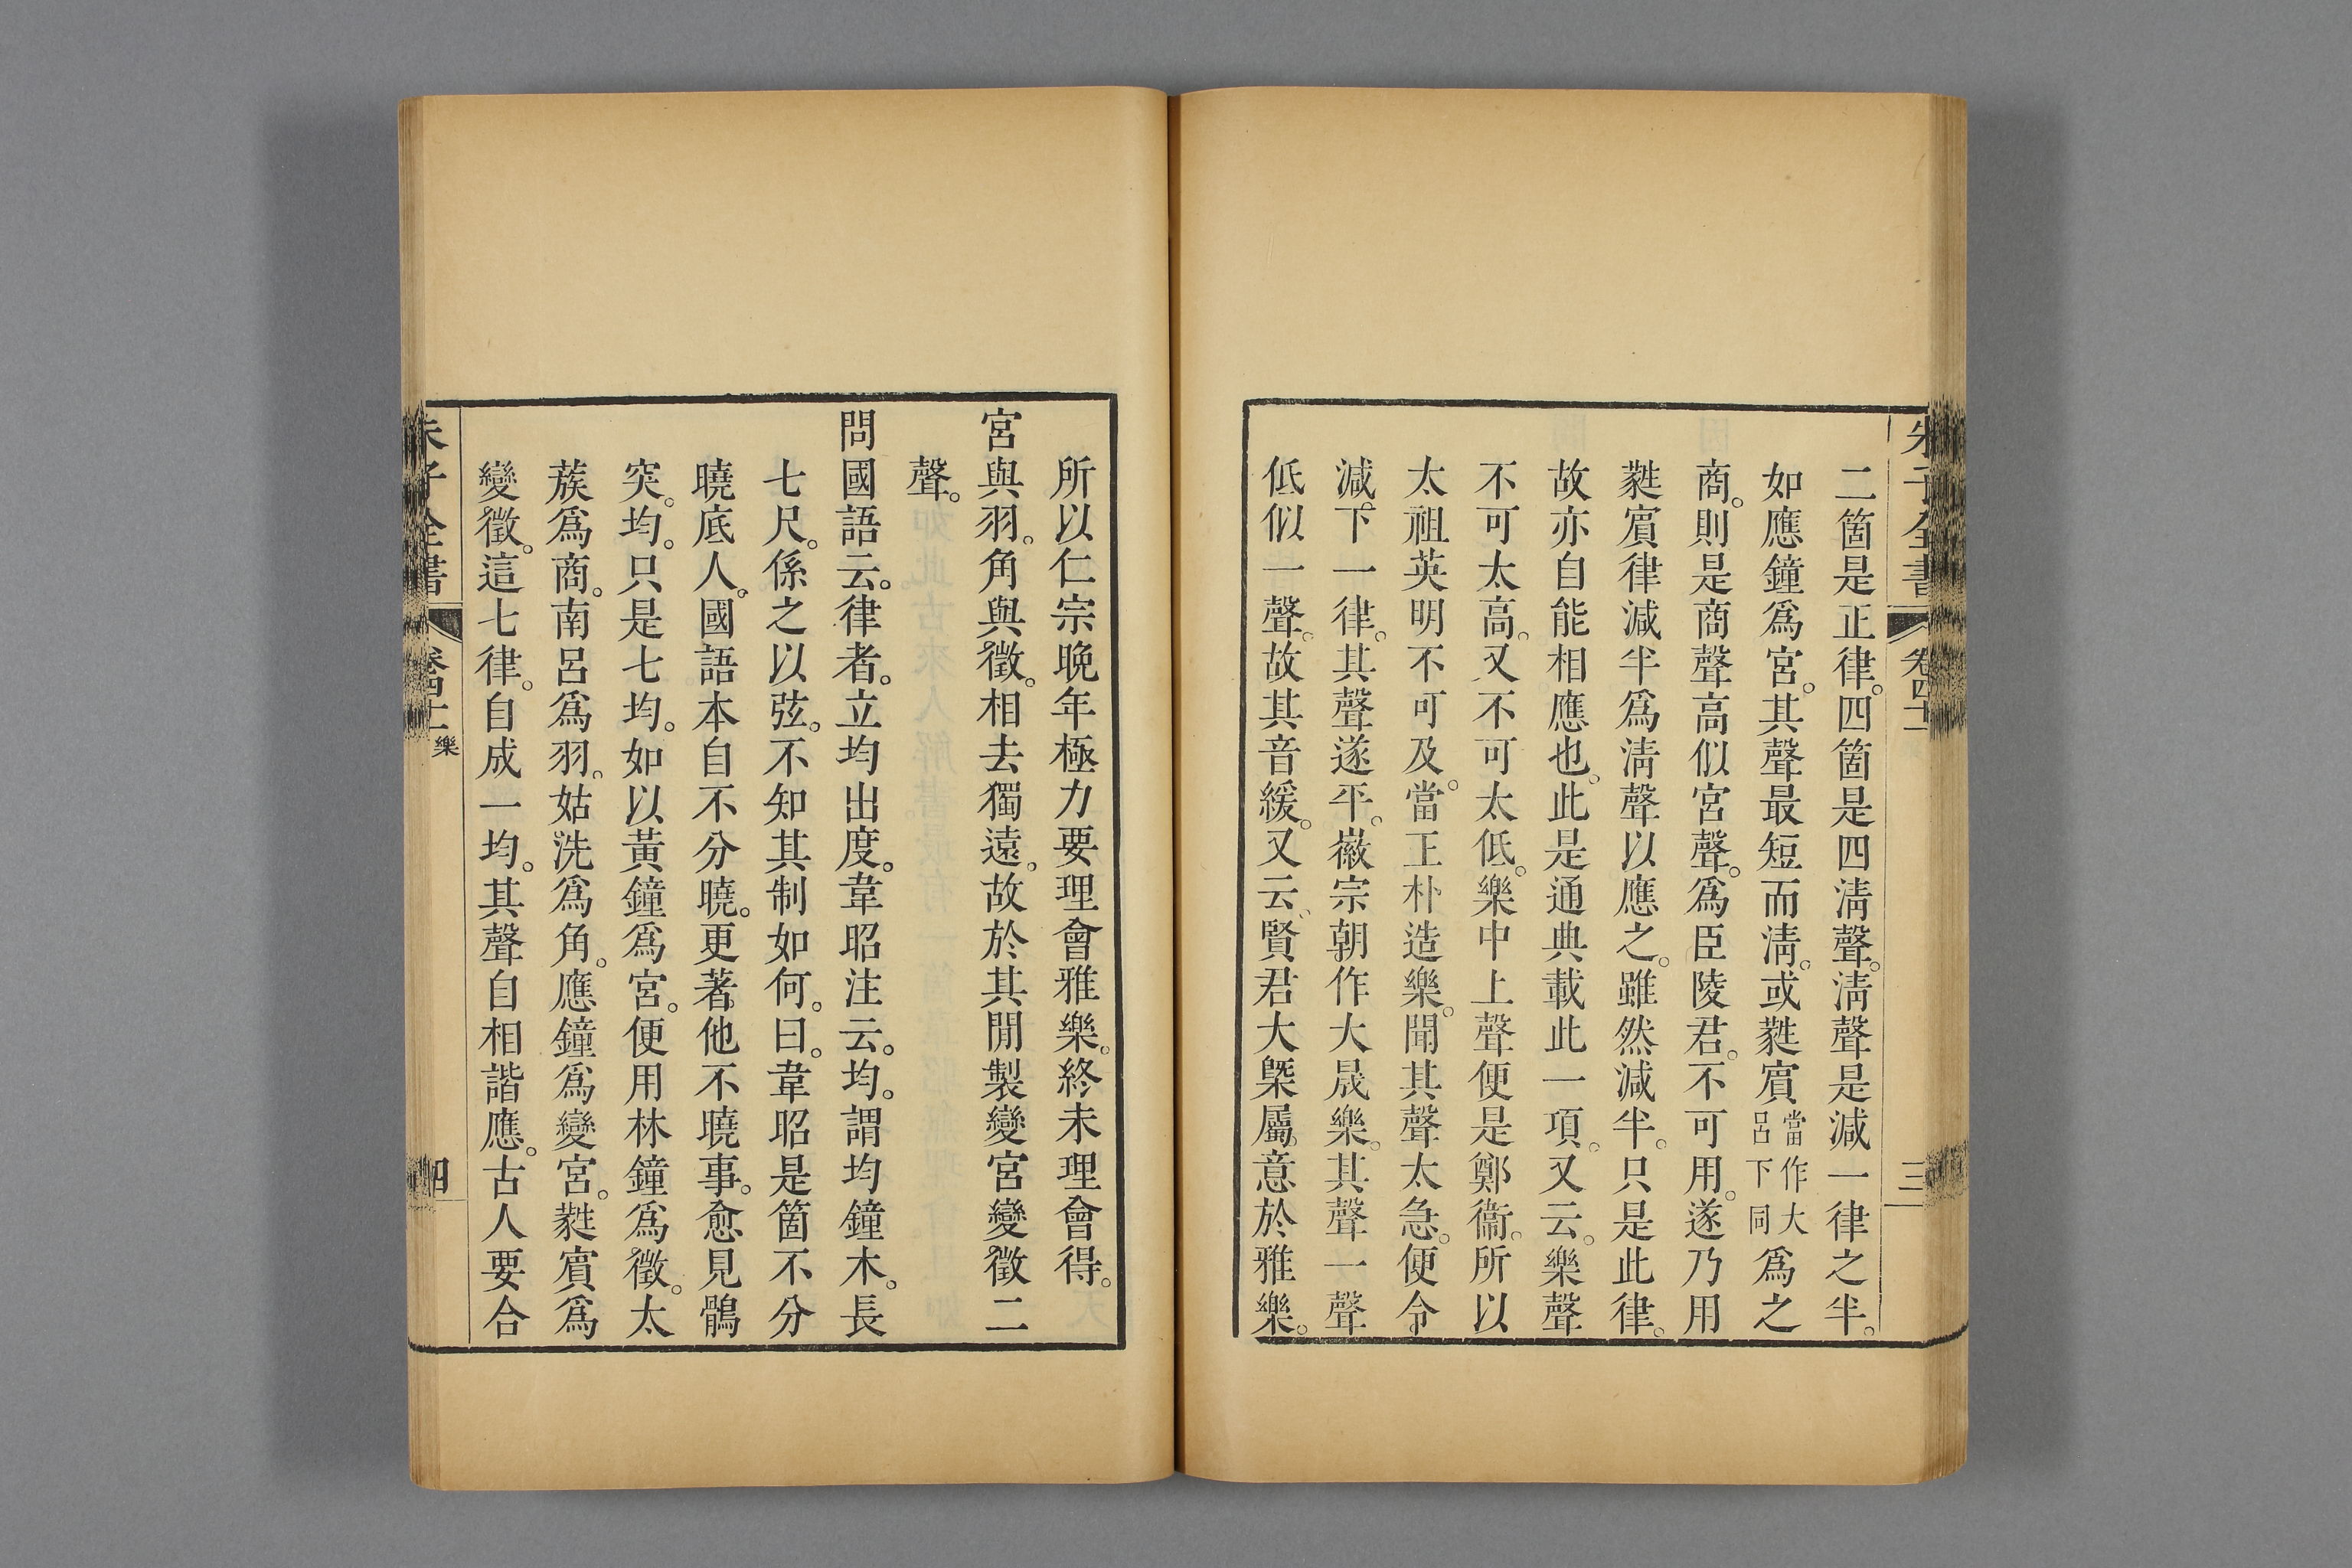 朱子全書 卷四十一 三
二箇是正律。四箇是四淸聲。淸聲是減一律之半。
如應鐘爲宮。其聲最短而淸。或蕤賓當作大呂下同爲之
商。則是商聲高似宮聲。爲臣陵君。不可用。遂乃用
蕤賓律減半爲淸聲以應之。雖然減半。只是此律。
故亦自能相應也。此是通典載此一項。又云。樂聲
不可太高。又不可太低。樂中上聲便是鄭衞。所以
太祖英明不可及。當王朴造樂。聞其聲太急。便令
減。下一律。其聲遂平。徽宗朝作大晟樂。其聲一聲
低似一聲。故其音緩。又云。賢君大槩屬。意於雅樂。
所以仁宗晚年極力要理會雅樂。終未理會得。
宮與羽。角與徵。相去獨遠。故於其閒製變宮變徵二
聲。
問國語云。律者。立均出度。韋昭注云。均。謂均鐘木。長
七尺。係之以弦。不知其制如何。曰。韋昭是箇不分
曉底人。國語本自不分曉。更著他不曉事。愈見鶻
突。均。只是七均。如以黃鐘爲宮。便用林鐘爲徵。太
蔟爲商。南呂爲羽。姑洗爲角。應鐘爲變宮。蕤賓爲
變徵。這七律。自成一均。其聲自相諧應。古人要合
朱子全書 卷四十一 樂 四